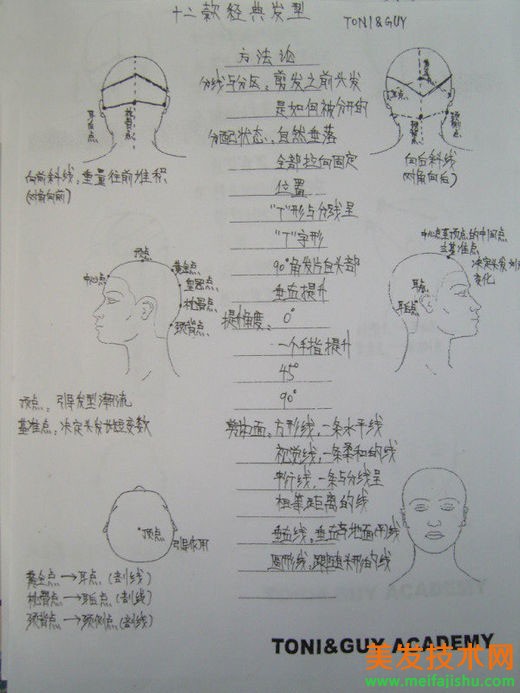 十二款经典发型 TONI&GUY
方法论
分线与分层，剪发之前头发
是如何被分开的
分配状态：自然垂落
全部拉向固定
位置
"T"形与分线呈
"T"字形
90°角发片包头部
垂直提升
提升角度：0°
一个手指提升
45°
90°
剪切面：方形线，一条水平线
视觉线，一条柔和的线
平行线，一条与分线呈
相等距离的线
垂直线，垂直与地面的线
圆形线，跟随头形的线
耳后点
枕骨点
向前斜线，重量往前堆积
(对角向前)
耳点
向后斜线
(对角向后)
顶点
中心点
黄金点
枕骨点
颈背点
顶点，引导发型潮流
基准点，决定头发长短变数
中心点至顶点的中间点
立基准点
变化
耳点
耳后点
顶点
黄金点→耳点(剖线)
枕骨点→耳后点(剖线)
颈背点→颈侧点(剖线)
TONI&GUY ACADEMY
美发技术网
www.meifajishu.com